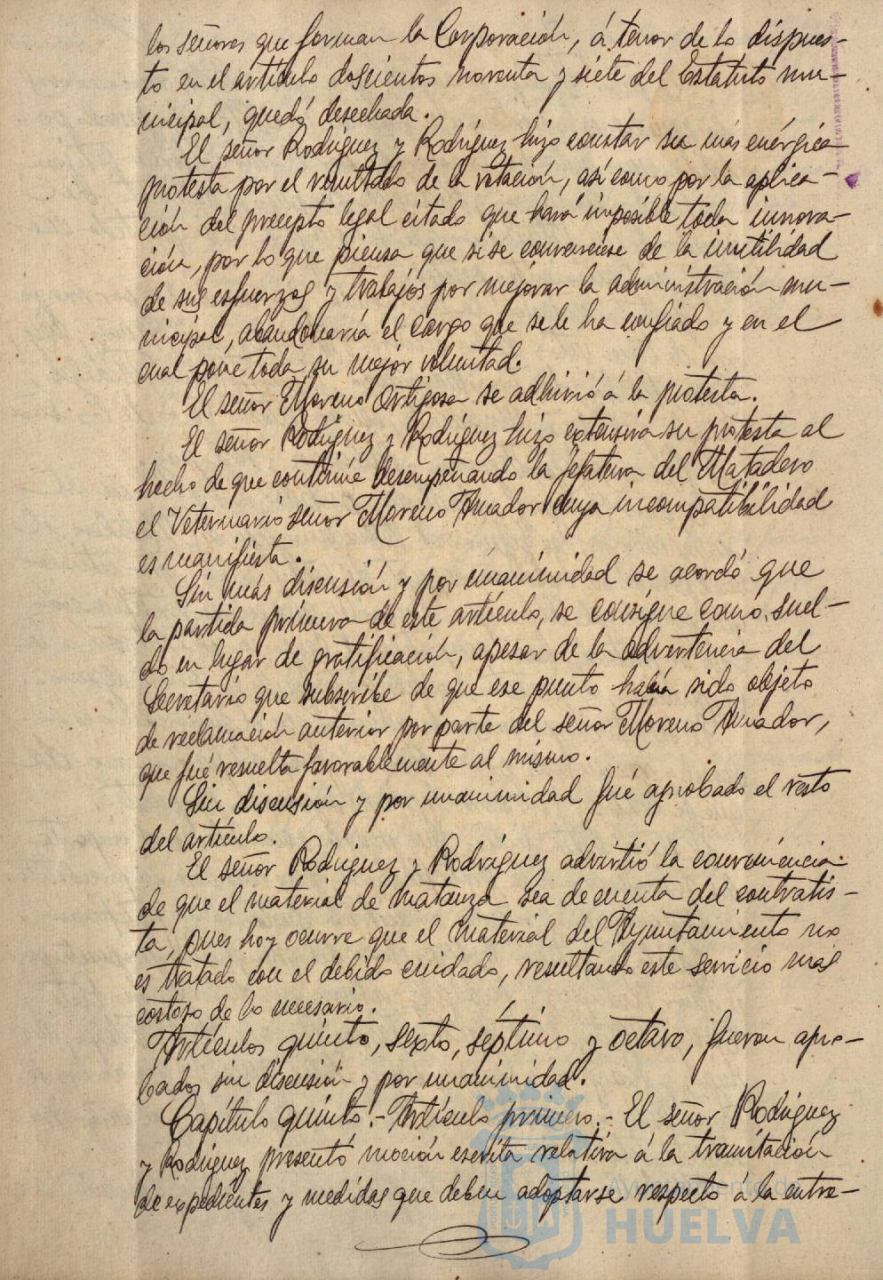 los señores que forman la Corporación, á tenor de lo dispues-
to en el artículo doscientos noventa y siete del Estatuto mu-
nicipal, quedó desechada.
El señor Rodríguez y Rodríguez hizo constar su más enérgica
protesta por el resultado de la votación, así como por la aplica-
ción del precepto legal citado que hará imposible toda innova-
ción, por lo que piensa que si se convenciese de la inutilidad
de sus esfuerzos y trabajos por mejorar la administración mu-
nicipal, abandonaría el cargo que se le ha confiado y en el
cual pone toda su mejor voluntad.
El señor Moreno Ortigosa se adhirió á la protesta.
El señor Rodríguez y Rodríguez hizo extensiva su protesta al
hecho de que continúe desempeñando la Jefatura del Matadero
el Veterinario señor Moreno Amador cuya incompatibilidad
es manifiesta.
Sin más discusión y por unanimidad se acordó que
la partida primera de este artículo, se consigne como suel-
do en lugar de gratificación, apesar de la advertencia del
Secretario que subscribe de que ese punto había sido objeto
de reclamación anterior por parte del señor Moreno Amador,
que fué resuelta favorablemente al mismo.
Sin discusión y por unanimidad fué aprobado el resto
del artículo.
El señor Rodríguez y Rodríguez advirtió la conveniencia
de que el material de matanza sea de cuenta del contratis-
ta, pues hoy ocurre que el material del Ayuntamiento no
es tratado con el debido cuidado, resultando este servicio mas
costoso de lo necesario.
Artículos quinto, sexto, séptimo y octavo, fueron apro-
bados sin discusión y por unanimidad.
Capítulo quinto.- Artículo primero.- El señor Rodríguez
y Rodríguez presentó moción escrita relativa á la tramitación
de expedientes y medidas que deben adoptarse respecto á la entre-
Ayuntamiento de
HUELVA